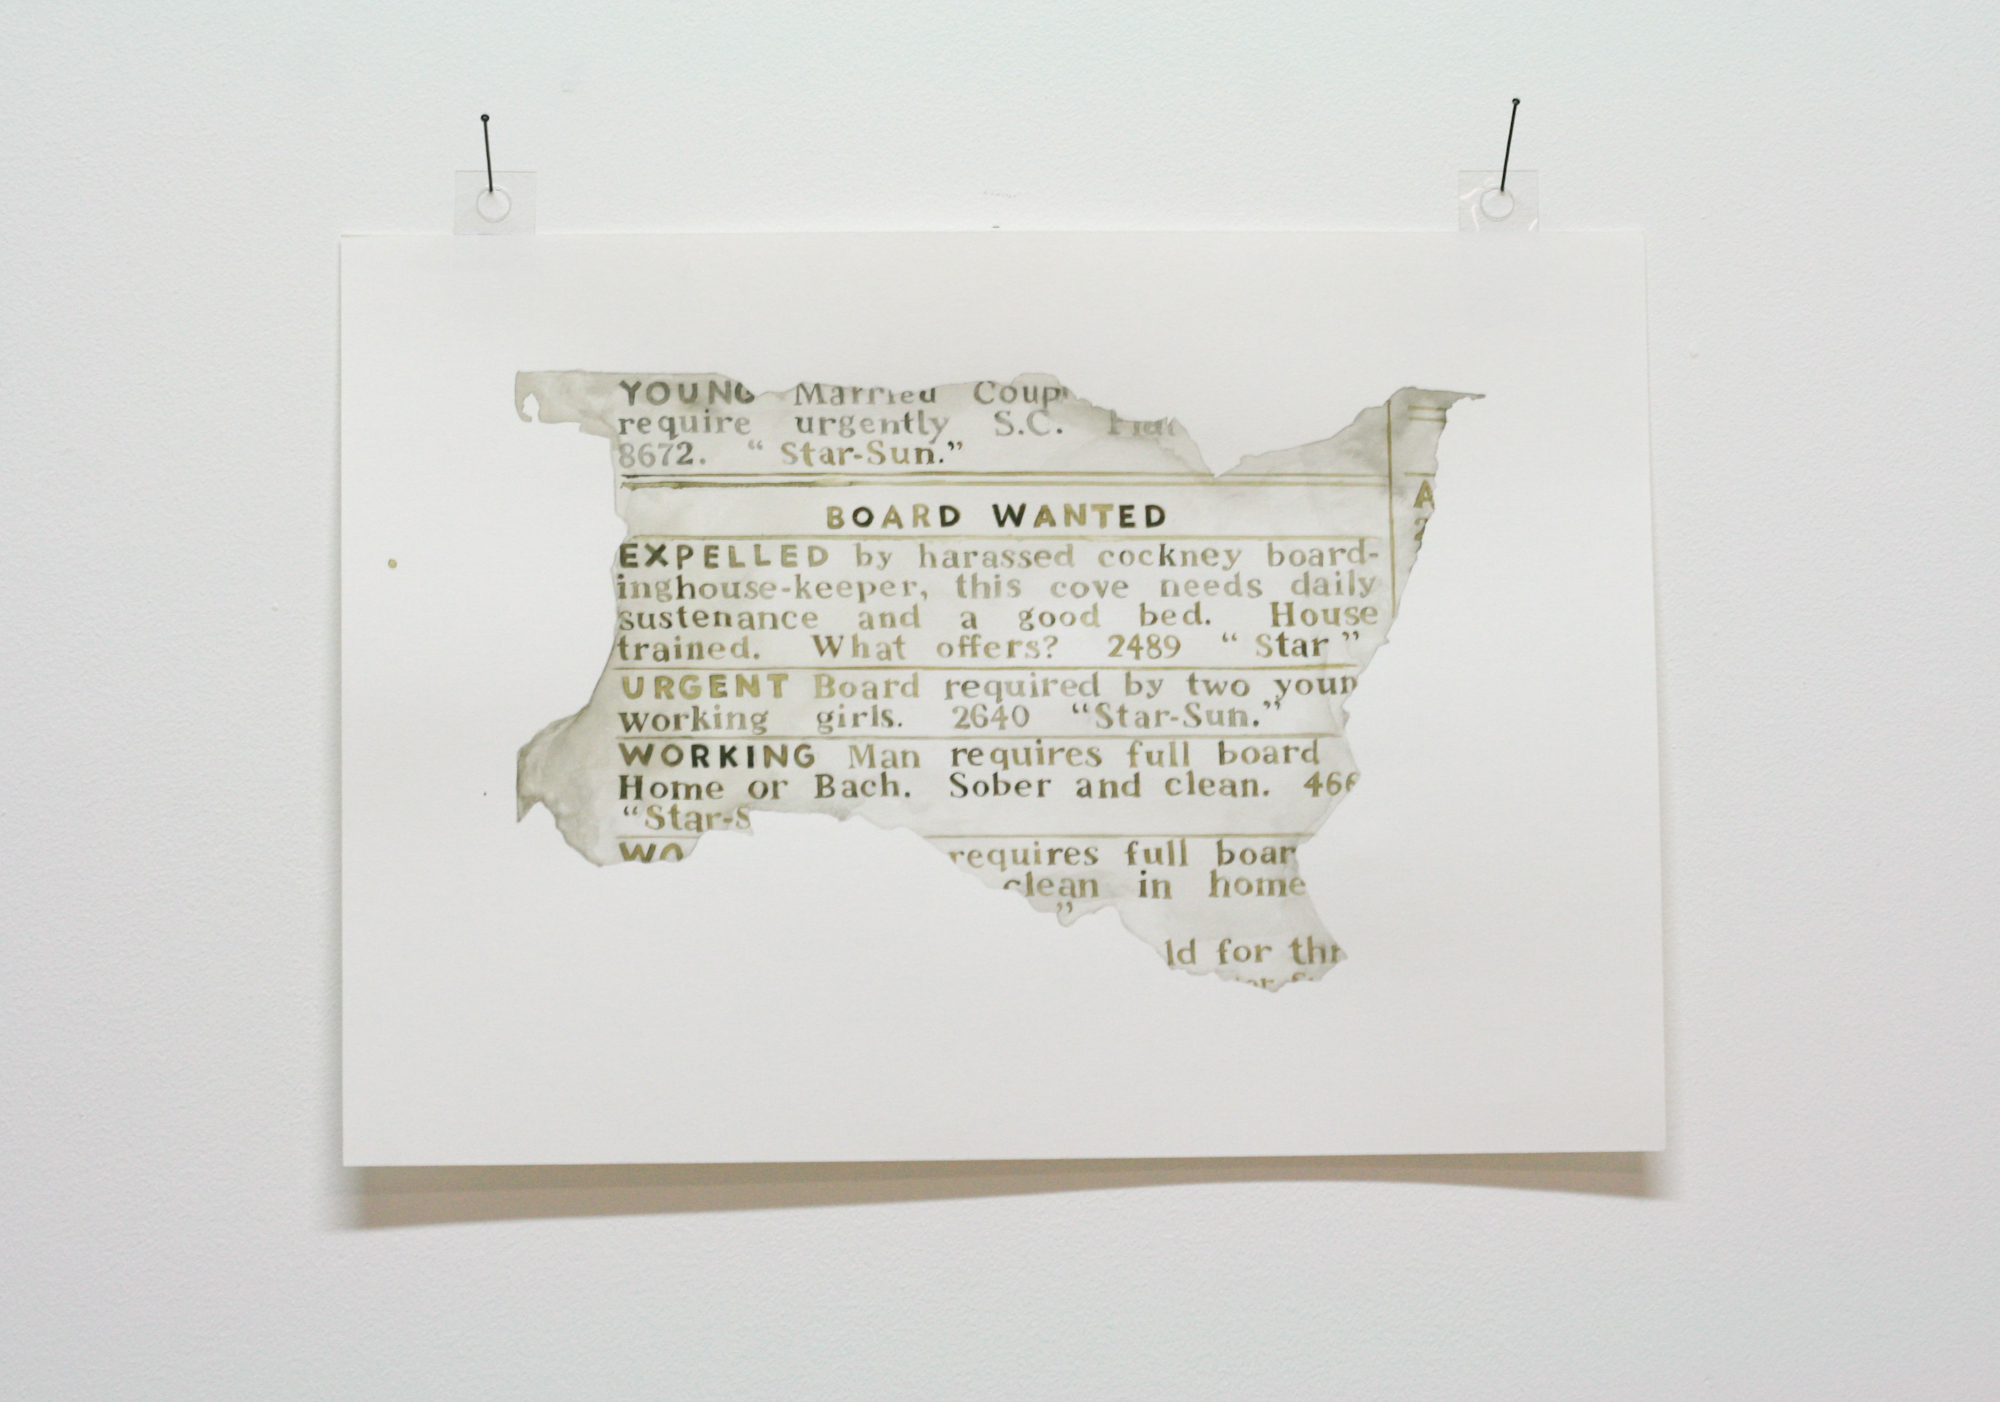 YOUNG Married Coup
require urgently S.C. Flat
8672. “ Star-Sun.”
BOARD WANTED
EXPELLED by harassed cockney board-
inghouse-keeper, this cove needs daily
sustenance and a good bed. House
trained. What offers? 2489 “ Star ”
URGENT Board required by two youn
working girls. 2640 “Star-Sun.”
WORKING Man requires full board
Home or Bach. Sober and clean. 466
“Star-S
WO requires full boar
clean in home
”
ld for thr
A
2